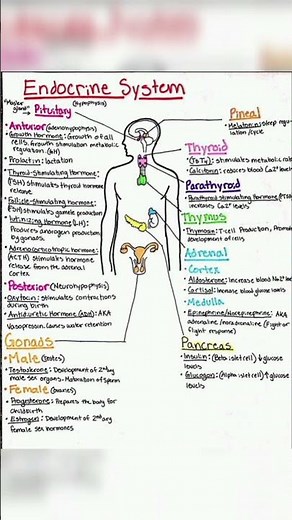 Endocrine System
"Master gland" → Pituitary (Hypophysis)
• Anterior (adenohypophysis)
• Growth Hormone: Growth of all
cells. Growth stimulation metabolic
regulation. (GH)
• Prolactin: lactation
• Thyroid-stimulating Hormone:
(TSH) stimulates thyroid hormone
release.
• Follicle-stimulating hormone:
(FSH) stimulates gamete production
Hormone (LH):
Produces androgen production
by gonads.
• Adrenocorticotrophic hormone:
(ACTH) Stimulates hormone
release from the adrenal
cortex.
• Posterior (Neurohypophysis)
• Oxytocin: Stimulates contractions
during birth
• Antidiuretic Hormone (ADH): AKA
Vasopressin. Causes water retention
Gonads
• Male (testes)
• Testosterone: Development of 2nd
male sex organs - Maturation of sperm
• Female (ovaries)
• Progesterone: Prepares the body for
childbirth
• Estrogen: Development of 2nd
female sex hormones
Pineal
• Melatonin: sleep regu-
lation/cycle
Thyroid
• (T3 T4): stimulates metabolic rate
• Calcitonin: reduces blood Ca2+ levels
Parathyroid
• Parathyroid stimulating hormone
increases Ca2+ levels
Thymus
• Thymosin: T-cell Production, Promotes
development of cells
Adrenal
• Cortex
• Aldosterone: Increase blood Na+ levels
• Cortisol: Increase blood glucose levels
• Medulla
• Epinephrine/Norepinephrine: AKA
adrenaline/noradrenaline (fight or
flight response)
Pancreas
• Insulin: (Beta islet cell) ↓ glucose
levels
• Glucagon: (Alpha islet cell) ↑ glucose
levels